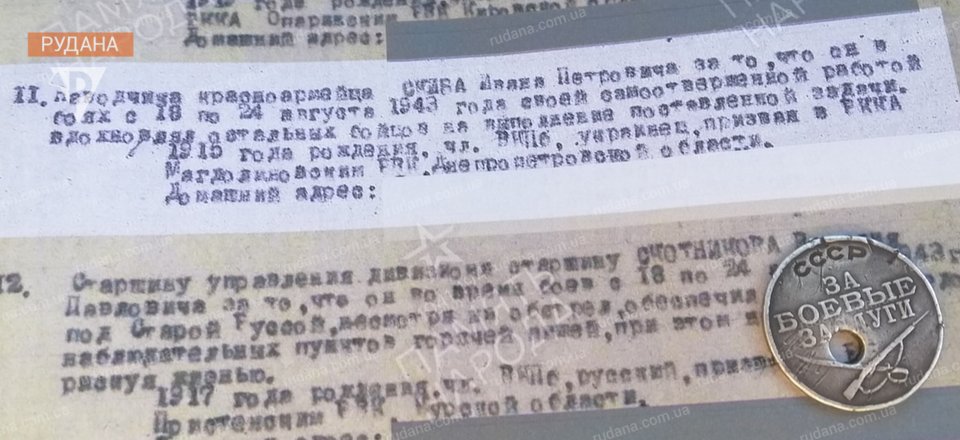 РККА Опарихским РВК Кировской области.
Домашний адрес:
РУДАНА
11. Наводчика красноармейца СУШВА Ивана Петровича за то, что он в
боях с 18 по 24 августа 1943 года своей самоотверженной работой
вдохновлял остальных бойцов на выполнение поставленной задачи.
1915 года рождения, чл. ВКПб, украинец, призван в РККА
Магдолиновским РВК, Днепропетровской области.
Домашний адрес:
12. Старшину управления дивизиона старшину СКОТНИКОВА
Павловича за то, что он во время боев с 18 по 24 1943 г
под Старой Руссой, несмотря на обстрел, обеспечил
наблюдательных пунктов горячей пищей, при этом
рискуя жизнью.
1917 года рождения, чл. ВКПб, русский,
Пристенским РВК Курской области.
СССР
ЗА
БОЕВЫЕ
ЗАСЛУГИ
ПАМЯТЬ
НАРОДА
rudana.com.ua